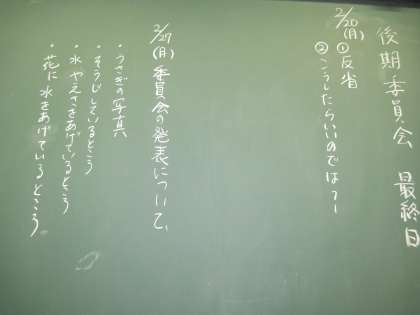 後期委員会 最終日
2/20(月)①反省
②こうしたらいいのでは？
2/27(月)委員会の発表について、
・うさぎの写真
・そうじしているところ
・水やえさをあげているところ
・花に水をあげているところ